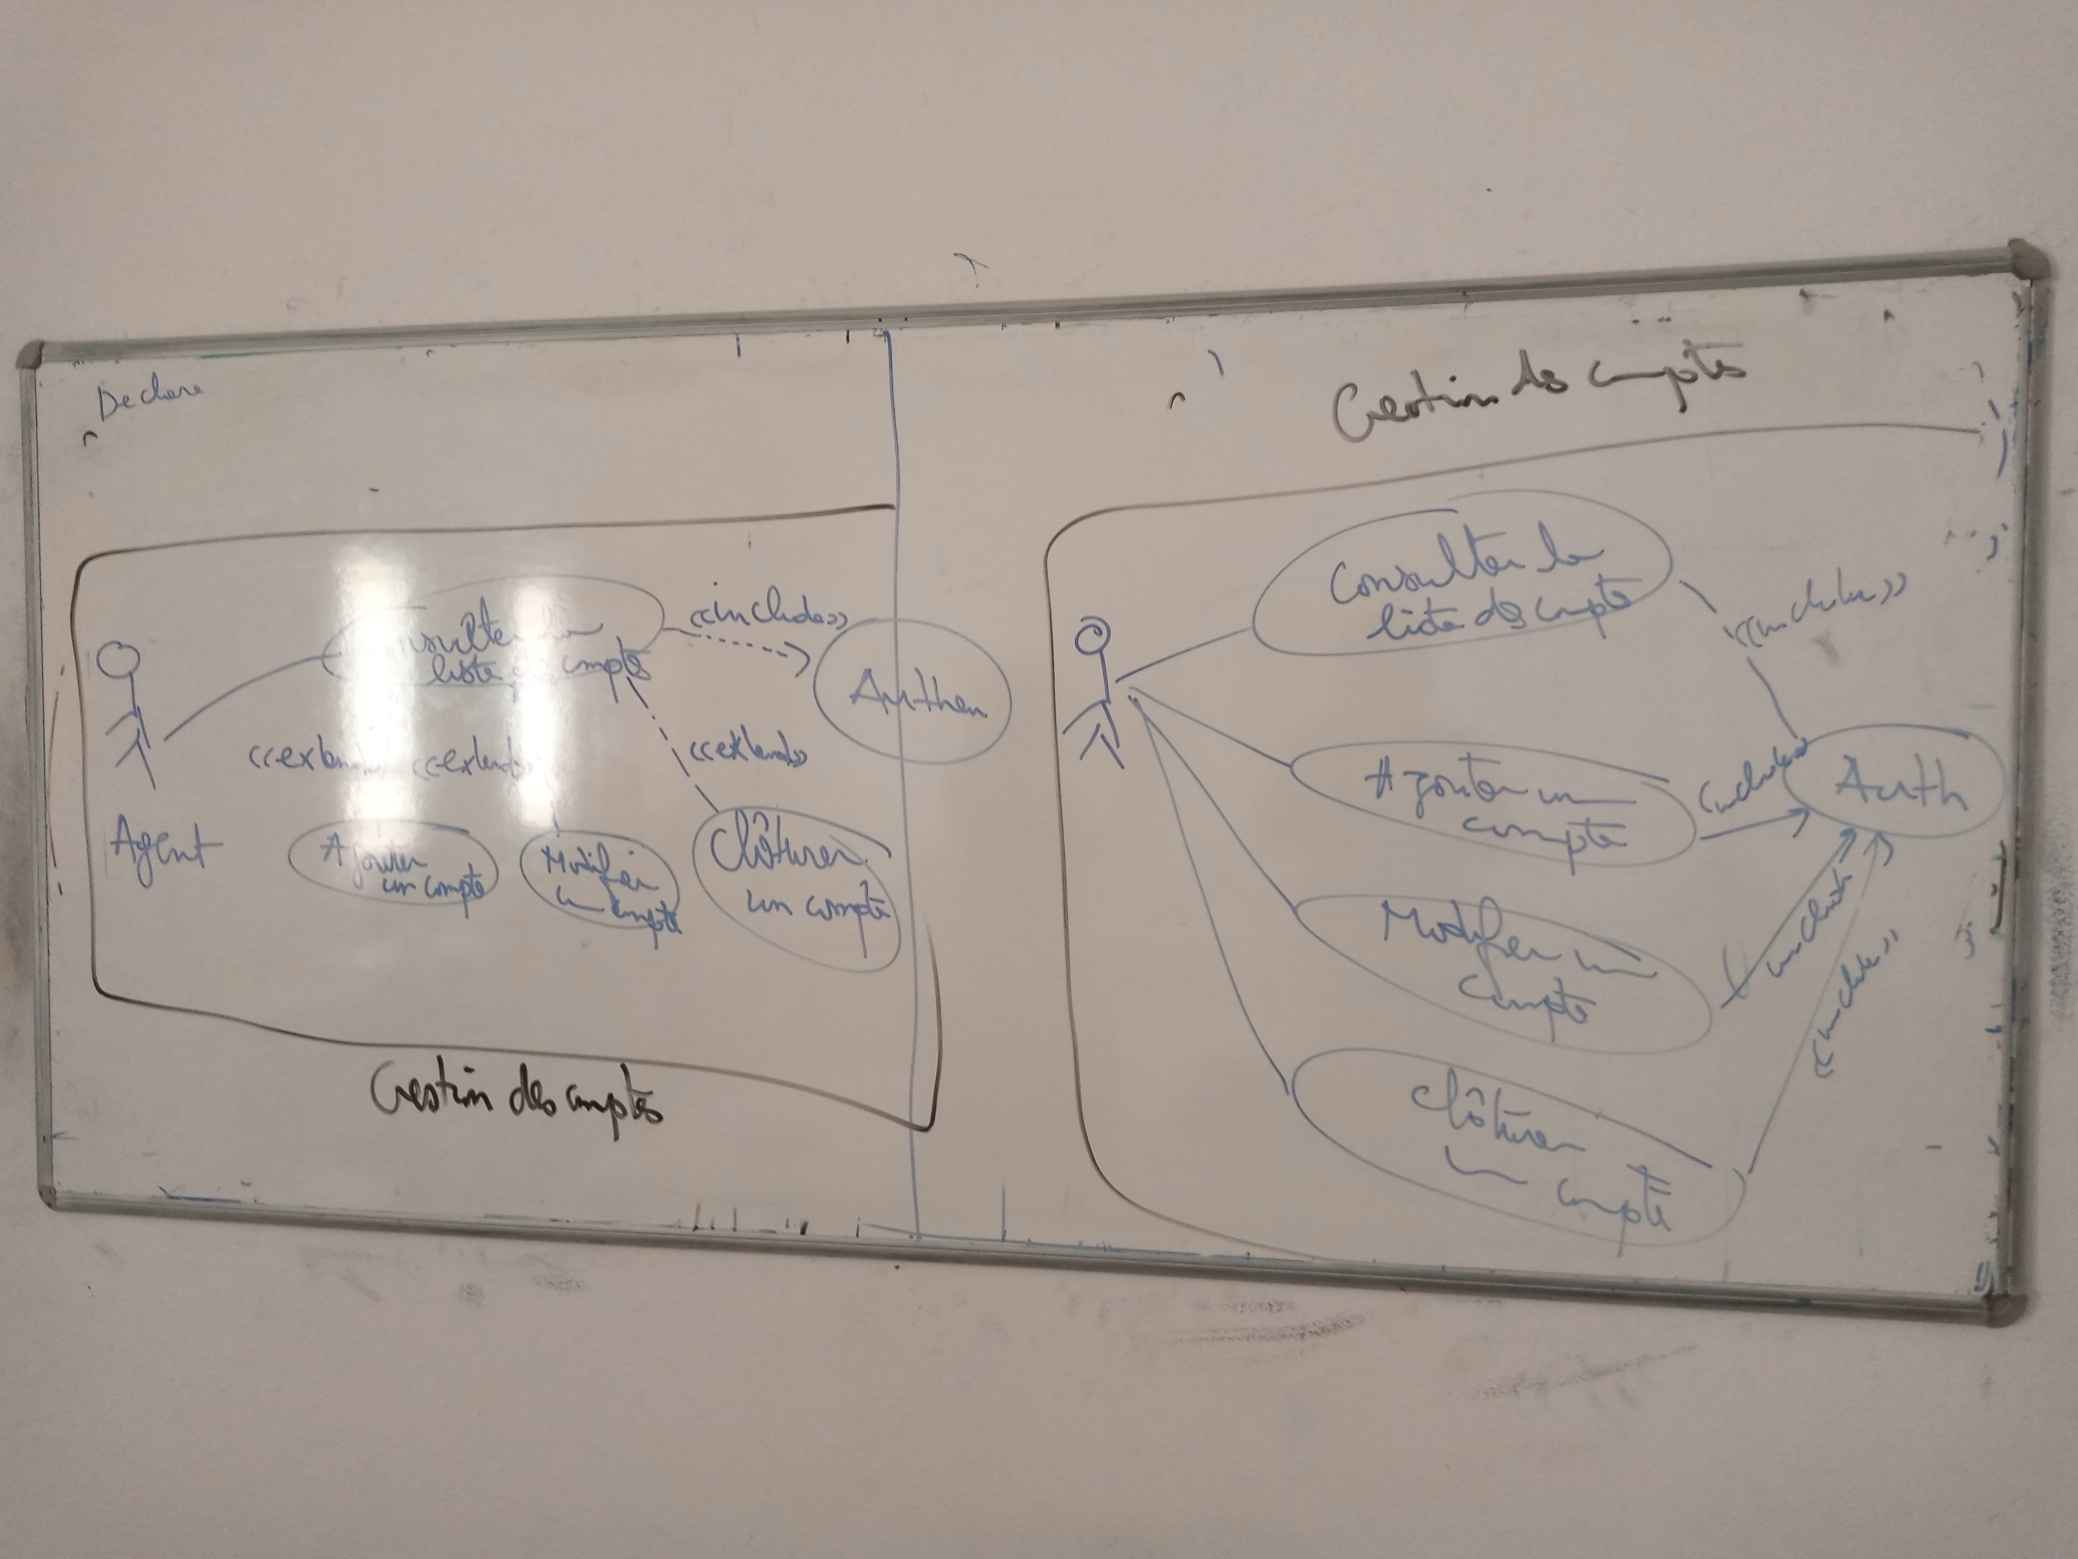 Declare
<<include>>
Consulter la
liste des comptes
Authen
<<extend
<<extend>>
<<extend>>
Agent
Ajouter
un compte
Modifier
un compte
Clôturer
un compte
Gestion des comptes
Gestion des comptes
Consulter la
liste des compte
<<include>>
Ajouter un
compte
<<include>>
Auth
Modifier un
compte
include
<<include>>
Clôturer
un compte